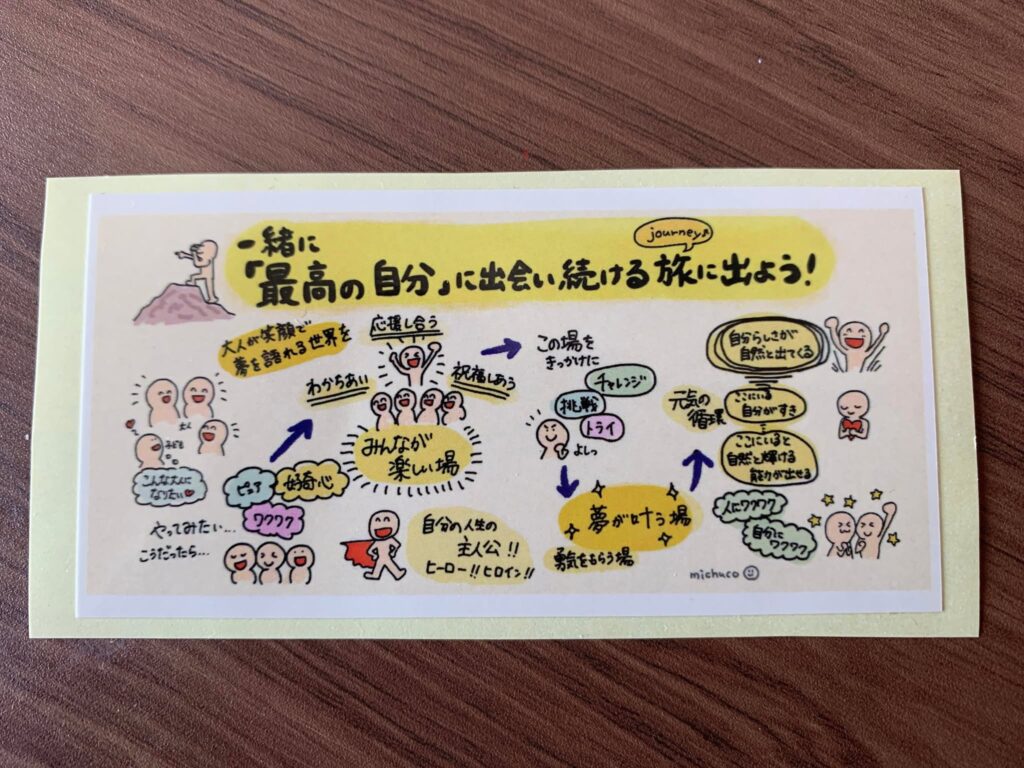 一緒に
「最高の自分」に出会い続ける旅に出よう!
journey♪
大人が笑顔で
夢を語れる世界を
応援し合う
わかちあい
祝福しあう
みんなが
楽しい場
大人
子ども
こんな大人に
なりたい♥
ピュア
好奇心
ワクワク
やってみたい...
こうだったら...
自分の人生の
主人公!!
ヒーロー!!ヒロイン!!
この場を
きっかけに
チャレンジ
挑戦
トライ
よしっ
夢が叶う場
勇気をもらう場
元気の
循環
自分らしさが
自然と出てくる
ここにいる
自分がすき
ここにいると
自然と輝ける
能力が出せる
人にワクワク
自分に
ワクワク
michuco